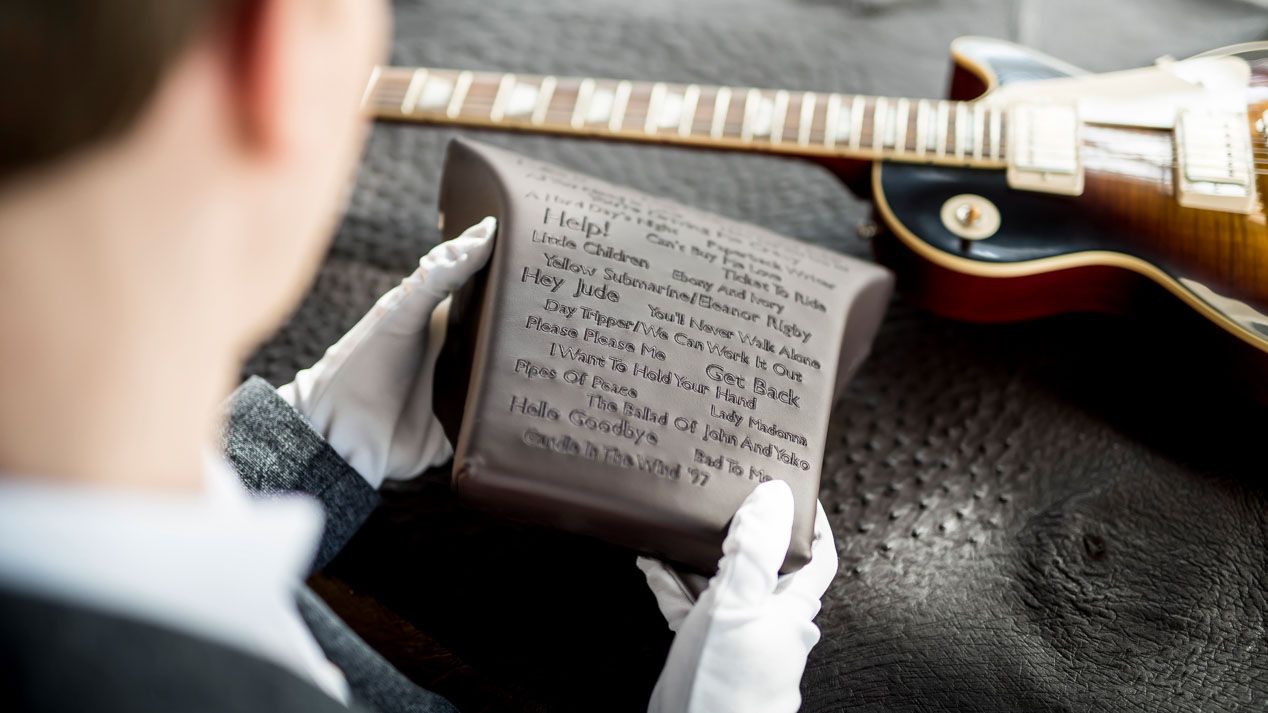 You're Driving Me Crazy
A Hard Day's Night Paperback Writer
Help! Can't Buy Me Love
Ticket To Ride
Little Children Ebony And Ivory
Yellow Submarine/Eleanor Rigby
Hey Jude You'll Never Walk Alone
Day Tripper/We Can Work It Out
Please Please Me Get Back
I Want To Hold Your Hand
Pipes Of Peace Lady Madonna
The Ballad Of John And Yoko
Hello Goodbye Bad To Me
Candle In The Wind '97